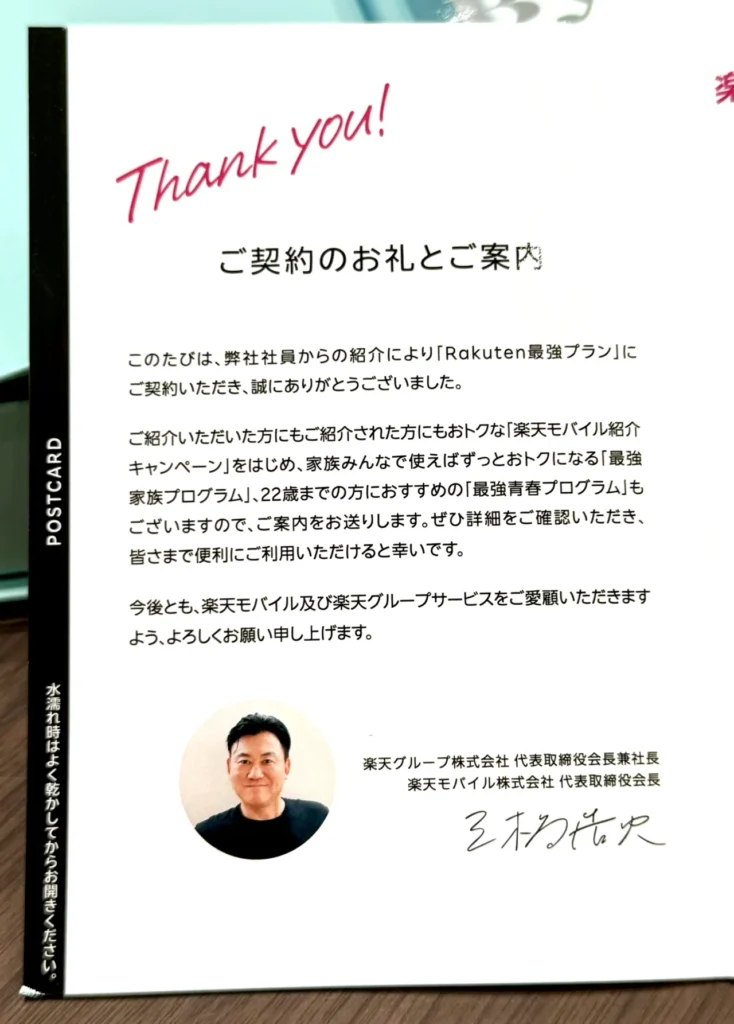 Thank you!
楽
ご契約のお礼とご案内
このたびは、弊社社員からの紹介により「Rakuten最強プラン」に
ご契約いただき、誠にありがとうございました。
ご紹介いただいた方にもご紹介された方にもおトクな「楽天モバイル紹介
キャンペーン」をはじめ、家族みんなで使えばずっとおトクになる「最強
家族プログラム」、22歳までの方におすすめの「最強青春プログラム」も
ございますので、ご案内をお送りします。ぜひ詳細をご確認いただき、
皆さまで便利にご利用いただけると幸いです。
今後とも、楽天モバイル及び楽天グループサービスをご愛顧いただきます
よう、よろしくお願い申し上げます。
楽天グループ株式会社 代表取締役会長兼社長
楽天モバイル株式会社 代表取締役会長
三木谷浩史
POSTCARD
水濡れ時はよく乾かしてからお開きください。